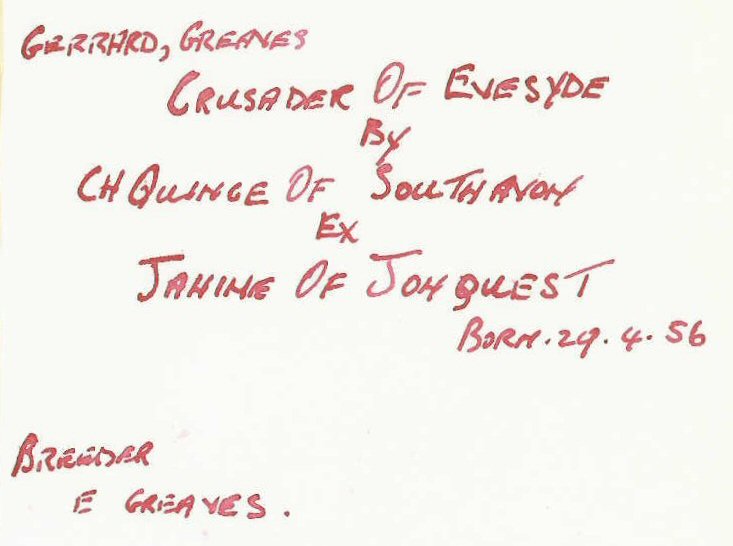 GERRARD, GREAVES
CRUSADER OF EVESYDE
By
CH QUINCE OF SOUTHAVON
EX
JANINE OF JONQUEST
BORN. 29. 4. 56
BREEDER
E GREAVES.